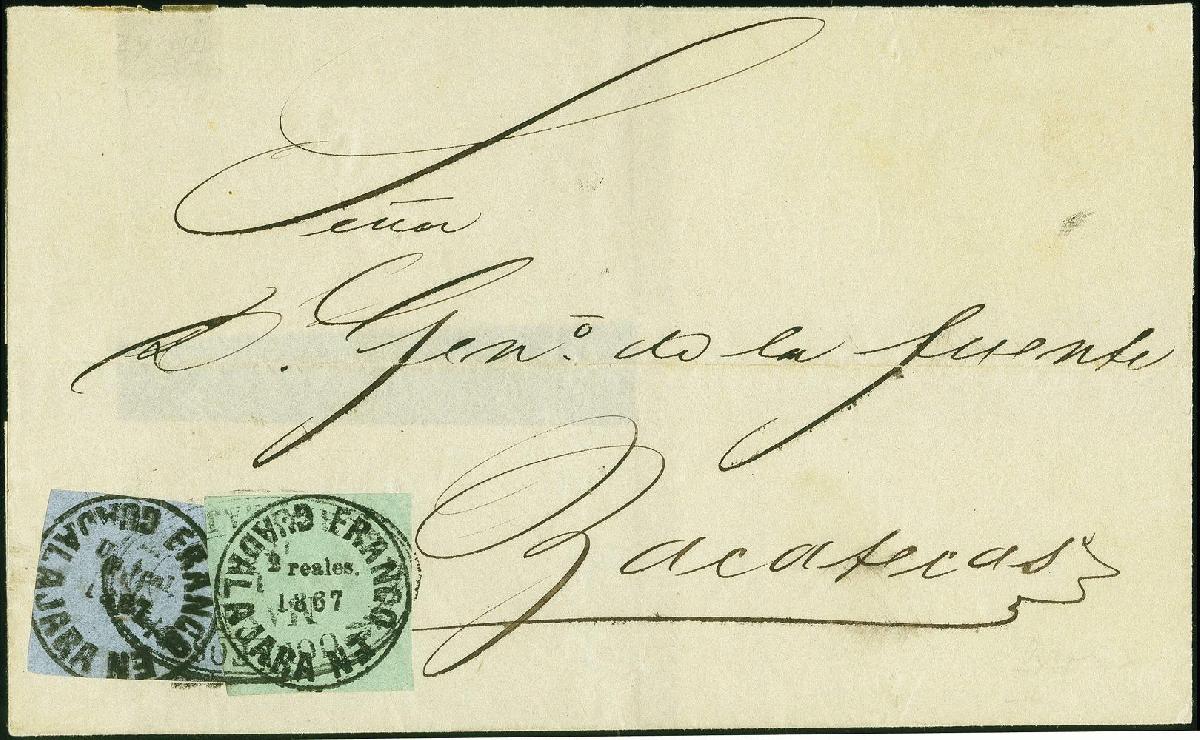 Señor
D. Genº. de la Fuente
Zacatecas
FRANCO EN GUADALAJARA
1867
FRANCO EN GUADALAJARA
2 reales.
1867